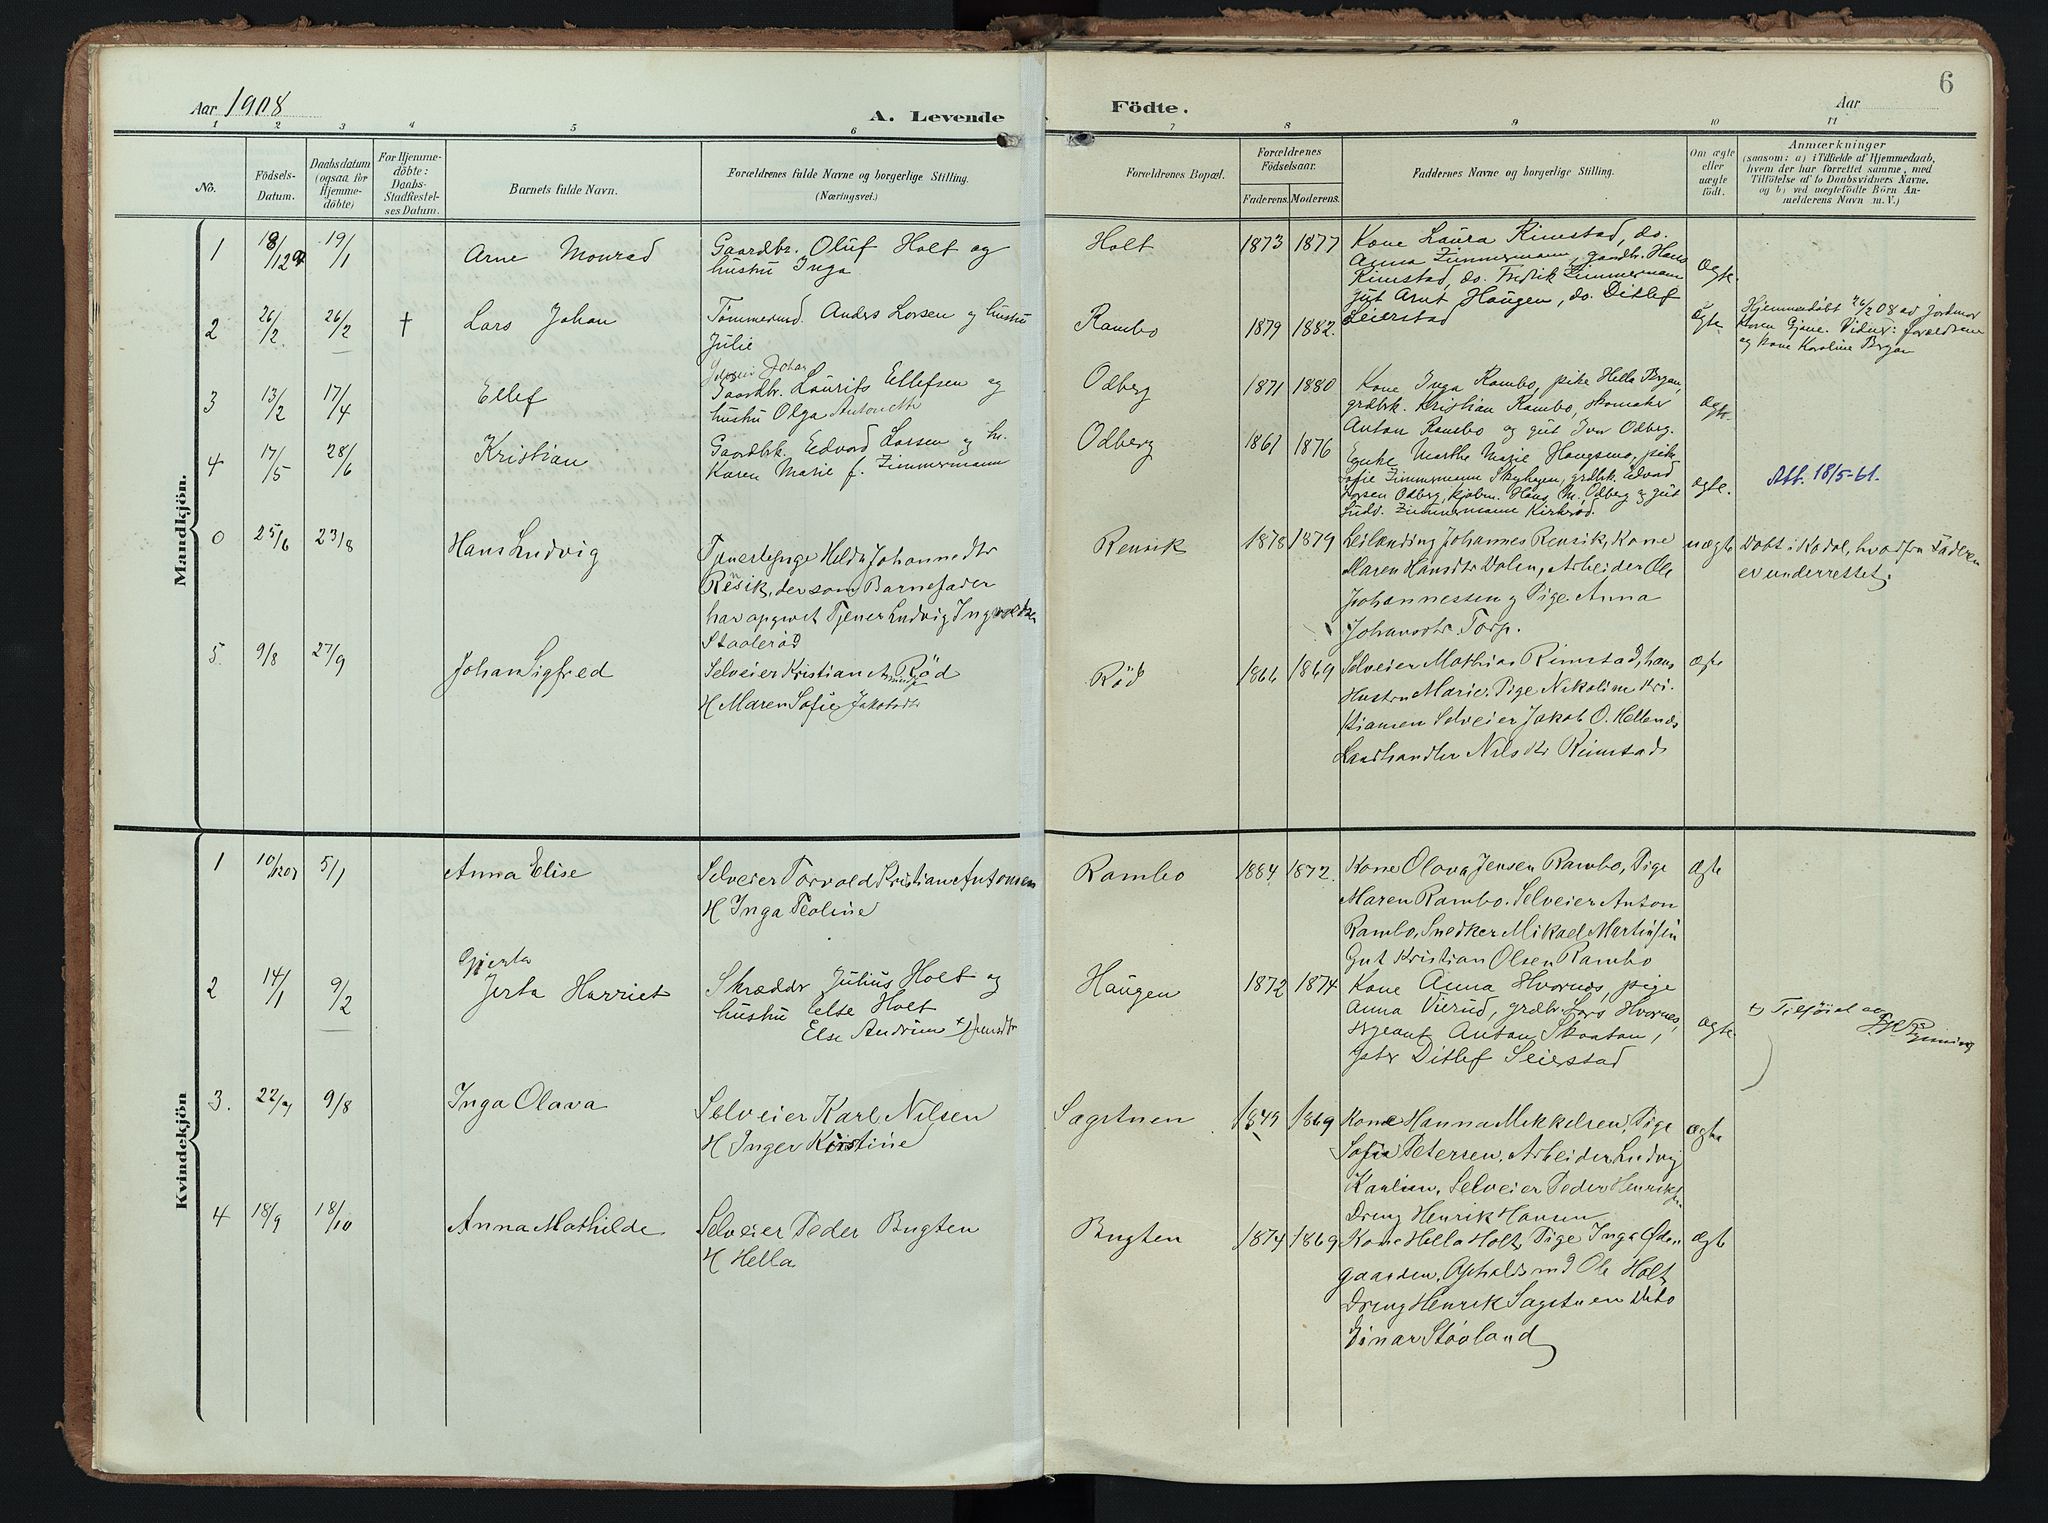 6
Aar 1908
A. Levende
Födte.
Aar
1 2 3 4 5 6 7 8 9 10 11
No.
Födsels-
Datum.
Daabsdatum
(ogsaa for
Hjemme-
döbte)
For Hjemme-
döbte:
Daabs-
Stadfæstel-
ses Datum.
Barnets fulde Navn.
Forældrenes fulde Navne og borgerlige Stilling.
(Næringsvei.)
Forældrenes Bopæl.
Forældrenes
Födselsaar.
Faderens. Moderens.
Faddernes Navne og borgerlige Stilling.
Om ægte
eller
uægte
födt.
Anmærkninger
(saasom: a) i Tilfælde af Hjemmedaab,
hvem der har forrettet samme, med
Tilföielse af to Daabsvidners Navne.
og b) ved uægtefödte Börn An-
melderens Navn m. V.)
Mandkjön.
1
19/1
Arne Monrad
Gaardbr. Oluf Holt og
hustru Inga
Holt
1873 1877
Kone Laura Rimstad, do.
Anna Zimmermann, gaardbr. Hans
Rimstad, do. Fredrik Zimmermann
gut Arnt Haugen, do. Ditlef
Seierstad
ægte.
2
26/2.
26/2
†
Lars Johan
Tømmermd. Anders Larsen og hustru
Julie
Rambo
1879 1882.
ægte
Hjemmedøbt 26/2 08 av jordmor
Karen Gjone. Vidner: forældrene
og kone Karoline Bryan
3
13/2
17/4
Ellef
Johan
Gaardbr. Laurits Ellefsen og
hustru Olga Antoneth
Odberg
1871 1880
Kone Inga Rambo, pike Hella Bryan,
grdbrk. Kristian Rambo, skomaker
Anton Rambo og gut Ivar Odberg.
ægte
4
17/5
28/6
Kristian
Gaardbrk. Edvard Larsen og h.
Karen Marie f. Zimmermann
Odberg
1861 1876
Enke Marthe Marie Haugsmo, pike
Sofie Zimmermann Skyhagen, grdbrk. Edvard
Larsen Odberg, kjøbm. Hans M. Odberg og gut
Ludv. Zimmermann Kirkerød.
ægte.
Att. 18/5-61.
0
25/6
23/8
Hans Ludvig
Tjenestepige Helda Johannesdtr
Rensik, der som Barnefader
har opgivet Tjener Ludvig Ingvoldsen
Staalerød
Rensik
1878 1879
Leilænding Johannes Rensik, Kone
Maren Hansdtr Dalen, Arbeider Ole
Johannessen og Pige Anna
Johansdtr Torp.
uægte
Døbt i Kodal, hvorfra Faderen
er underrettet.
5.
9/8
27/9
Johan Sigfred
Selveier Kristian Rød
H Maren Sofie Jakobsdtr
Rød
1866 1869
Selveier Mathias Rimstad, hans
Hustru Marie. Pige Nikoline Kri-
stiansen Selveier Jakob O. Hellenæs
Landhandler Nils Rimstad
ægte
Kvindekjön
1
10/12 07
5/1
Anna Elise
Selveier Torvald Kristian Antonsen
H Inga Teoline
Rambo
1884 1872.
Kone Olava Jensen Rambo, Pige
Maren Rambo. Selveier Anton
Rambo, Snedker Mikael Martinsen
Gut Kristian Olsen Rambo
ægte
2
14/1
9/2
Gjerta
Jerta Harriet
Skrædder Julius Holt og
hustru Else Holt
Else Andrine + Jensdtr
Haugen
1872 1874
Kone Anna Hvarnes, pige
Anna Vierud, grdbr. Lars Hvarnes,
sergeant Anton Skaatan,
Ditlef Seierstad
ægte
+) Tilføiet av
3.
9/8
Inga Olava
Selveier Karl Nilsen
H Inger Kirstine
Sagstuen
1849 1869
Kone Hanna Mikkelsen, Pige
Sofie Petersen. Arbeider Ludvig
Karlsen, Selveier Peder Henriksen
Dreng Henrik Hansen
ægte
4
18/9
18/10
Anna Mathilde
Selveier Peder Bugten
H Hella
Bugten
1874 1869
Kone Hella Holt, Pige Inga Øde-
gaarden, Opholdsmd Ole Holt
Dreng Henrik Sagstuen Dito
Einar Støvland
ægte